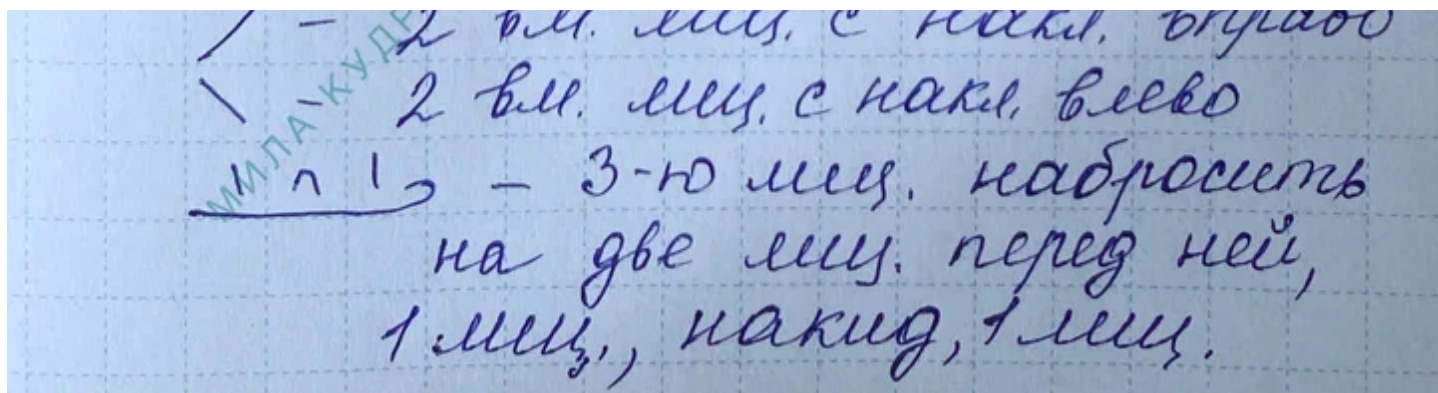 / - 2 вм. лиц. с накл. вправо
\ - 2 вм. лиц. с накл. влево
| ∩ | - 3-ю лиц. набросить
на две лиц. перед ней,
1 лиц., накид, 1 лиц.
МИЛА КУДР